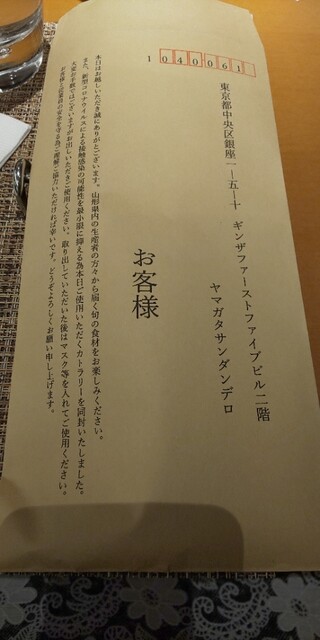 1040061
東京都中央区銀座一ー五ー十 ギンザファーストファイブビル二階
ヤマガタサンダンデロ
お客様
本日はお越しいただき誠にありがとうございます。山形県内の生産者の方々から届く旬の食材をお楽しみください。
また、新型コロナウイルスによる接触感染の可能性を最小限に抑える為本日ご使用いただくカトラリーを同封いたしました。
大変お手数ではございますがお出しいただきご使用ください。取り出していただいた後はマスク等を入れてご使用ください。
お客様と従業員の安全を守る為ご理解ご協力いただければ幸いです。どうぞよろしくお願い申し上げます。